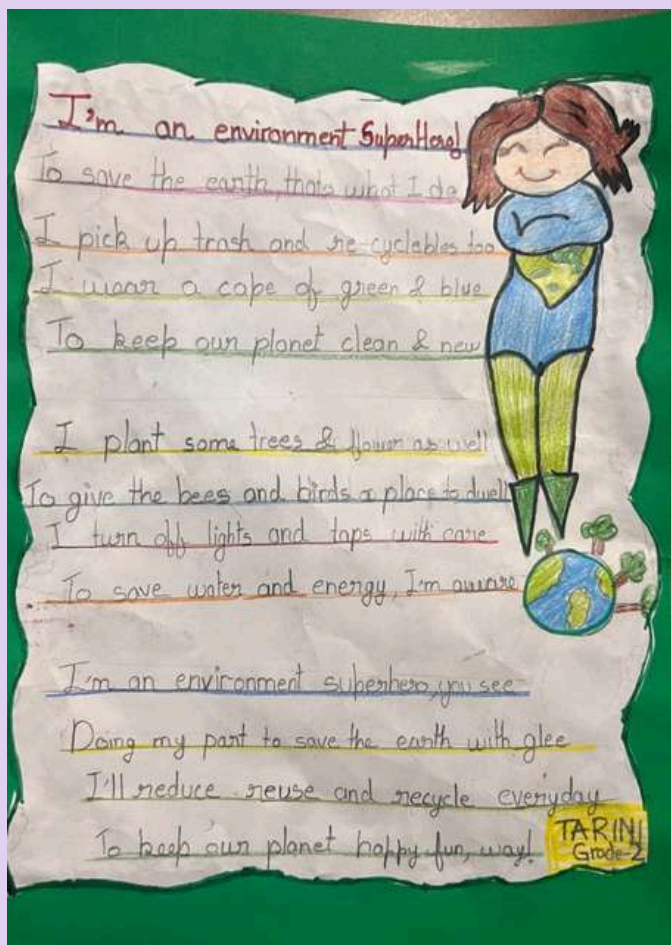 I'm an environment SuperHero!
To save the earth, thats what I do
I pick up trash and re-cyclables too
I wear a cape of green & blue
To keep our planet clean & new
I plant some trees & flower as well
To give the bees and birds a place to dwell
I turn off lights and taps with care
To save water and energy, I'm aware
I'm an environment superhero, you see
Doing my part to save the earth with glee
I'll reduce reuse and recycle everyday
To keep our planet happy fun, way!
TARINI
Grade-2